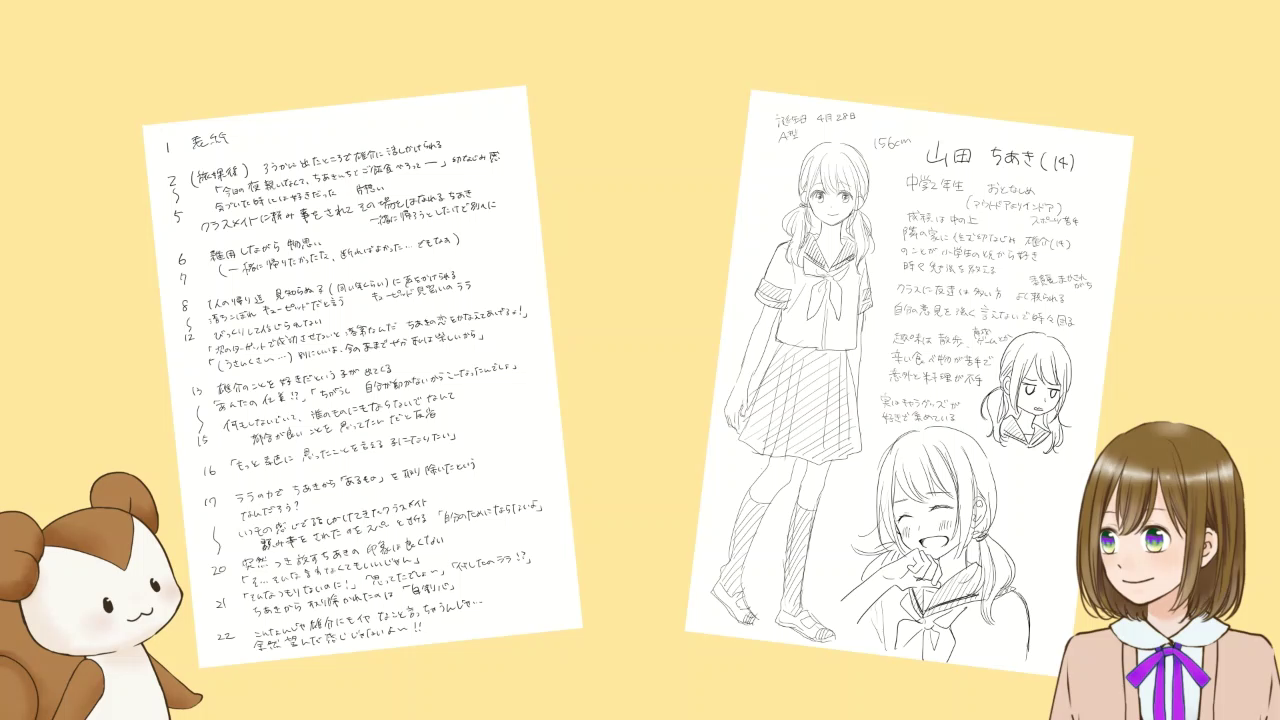 1 表紙
2 (放課後) ろうかに出たところで雄介に話しかけられる
「今日の夜親いなくて、ちあきんちとご飯食べやってー」幼なじみ
気づいた時には好きだった 片想い
5 クラスメイトに頼み事をされてその場をはなれるちあき
一緒に帰ろうとしたけど別々に
6 雑用しながら物思い
7 (一緒に帰りたかったな、断ればよかった…でもなあ)
8 1人の帰り道 見知らぬ子(同い年くらい)に声をかけられる
落ちこぼれキューピッドだと言う キューピッド見習いのララ
12 びっくりして信じられない
「次のターゲットで成功させないと落第なんだ ちあきの恋をかなえてあげるよ!」
「(うさんくさー…)別にいいよ、今のままでやかなれば楽しいから」
13 雄介のことを好きだという子が出てくる
「あんたの仕業!?」「ちがうし 自分が動かないからこーなったんでしょ」
何もしないでいて、誰のものにもならないでなんて
15 都合が良いことを思ってたんだと反省
16 「もっと素直に思ったことを言える子になりたい」
17 ララの力でちあきから「あるもの」を取り除いたという
なんだろう?
いつもの感じで話しかけてきたクラスメイト
頼み事をされたのをスパッと断る「自分のためにならないよ」
20 突然つき放すちあきの印象は良くない
「そ…そんな言い方しなくてもいいじゃん」
21 「そんなつもりないのに!」「思ってたでしょ〜」「何したのララ!?」
ちあきから取り除かれたのは「自制心」
22 こんなんじゃ雄介にもイヤなこと言っちゃうんじゃ…
全然望んだ感じじゃないよ〜!!
誕生日 4月28日
A型
156cm
山田 ちあき(14)
中学2年生 おとなしめ
(アウトドアよりインドア)
成績は中の上 スポーツ苦手
隣の家に住む幼なじみ 雄介(14)
のことが小学生の頃から好き
時々勉強を教える
学級委員まかされがち
クラスに友達は多い方 よく頼られる
自分の意見を強く言えないで時々困る
趣味は散歩、
辛い食べ物が苦手で
意外と料理が不得手
実はキャラグッズが
好きで集めている